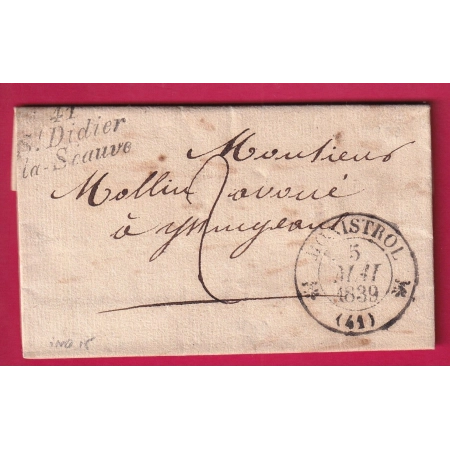 41
St Didier
la-Seauve
Monsieur
Mollin avoué
à yssingeaux
2
MONISTROL
5
MAI
1839
(41)
IND 15